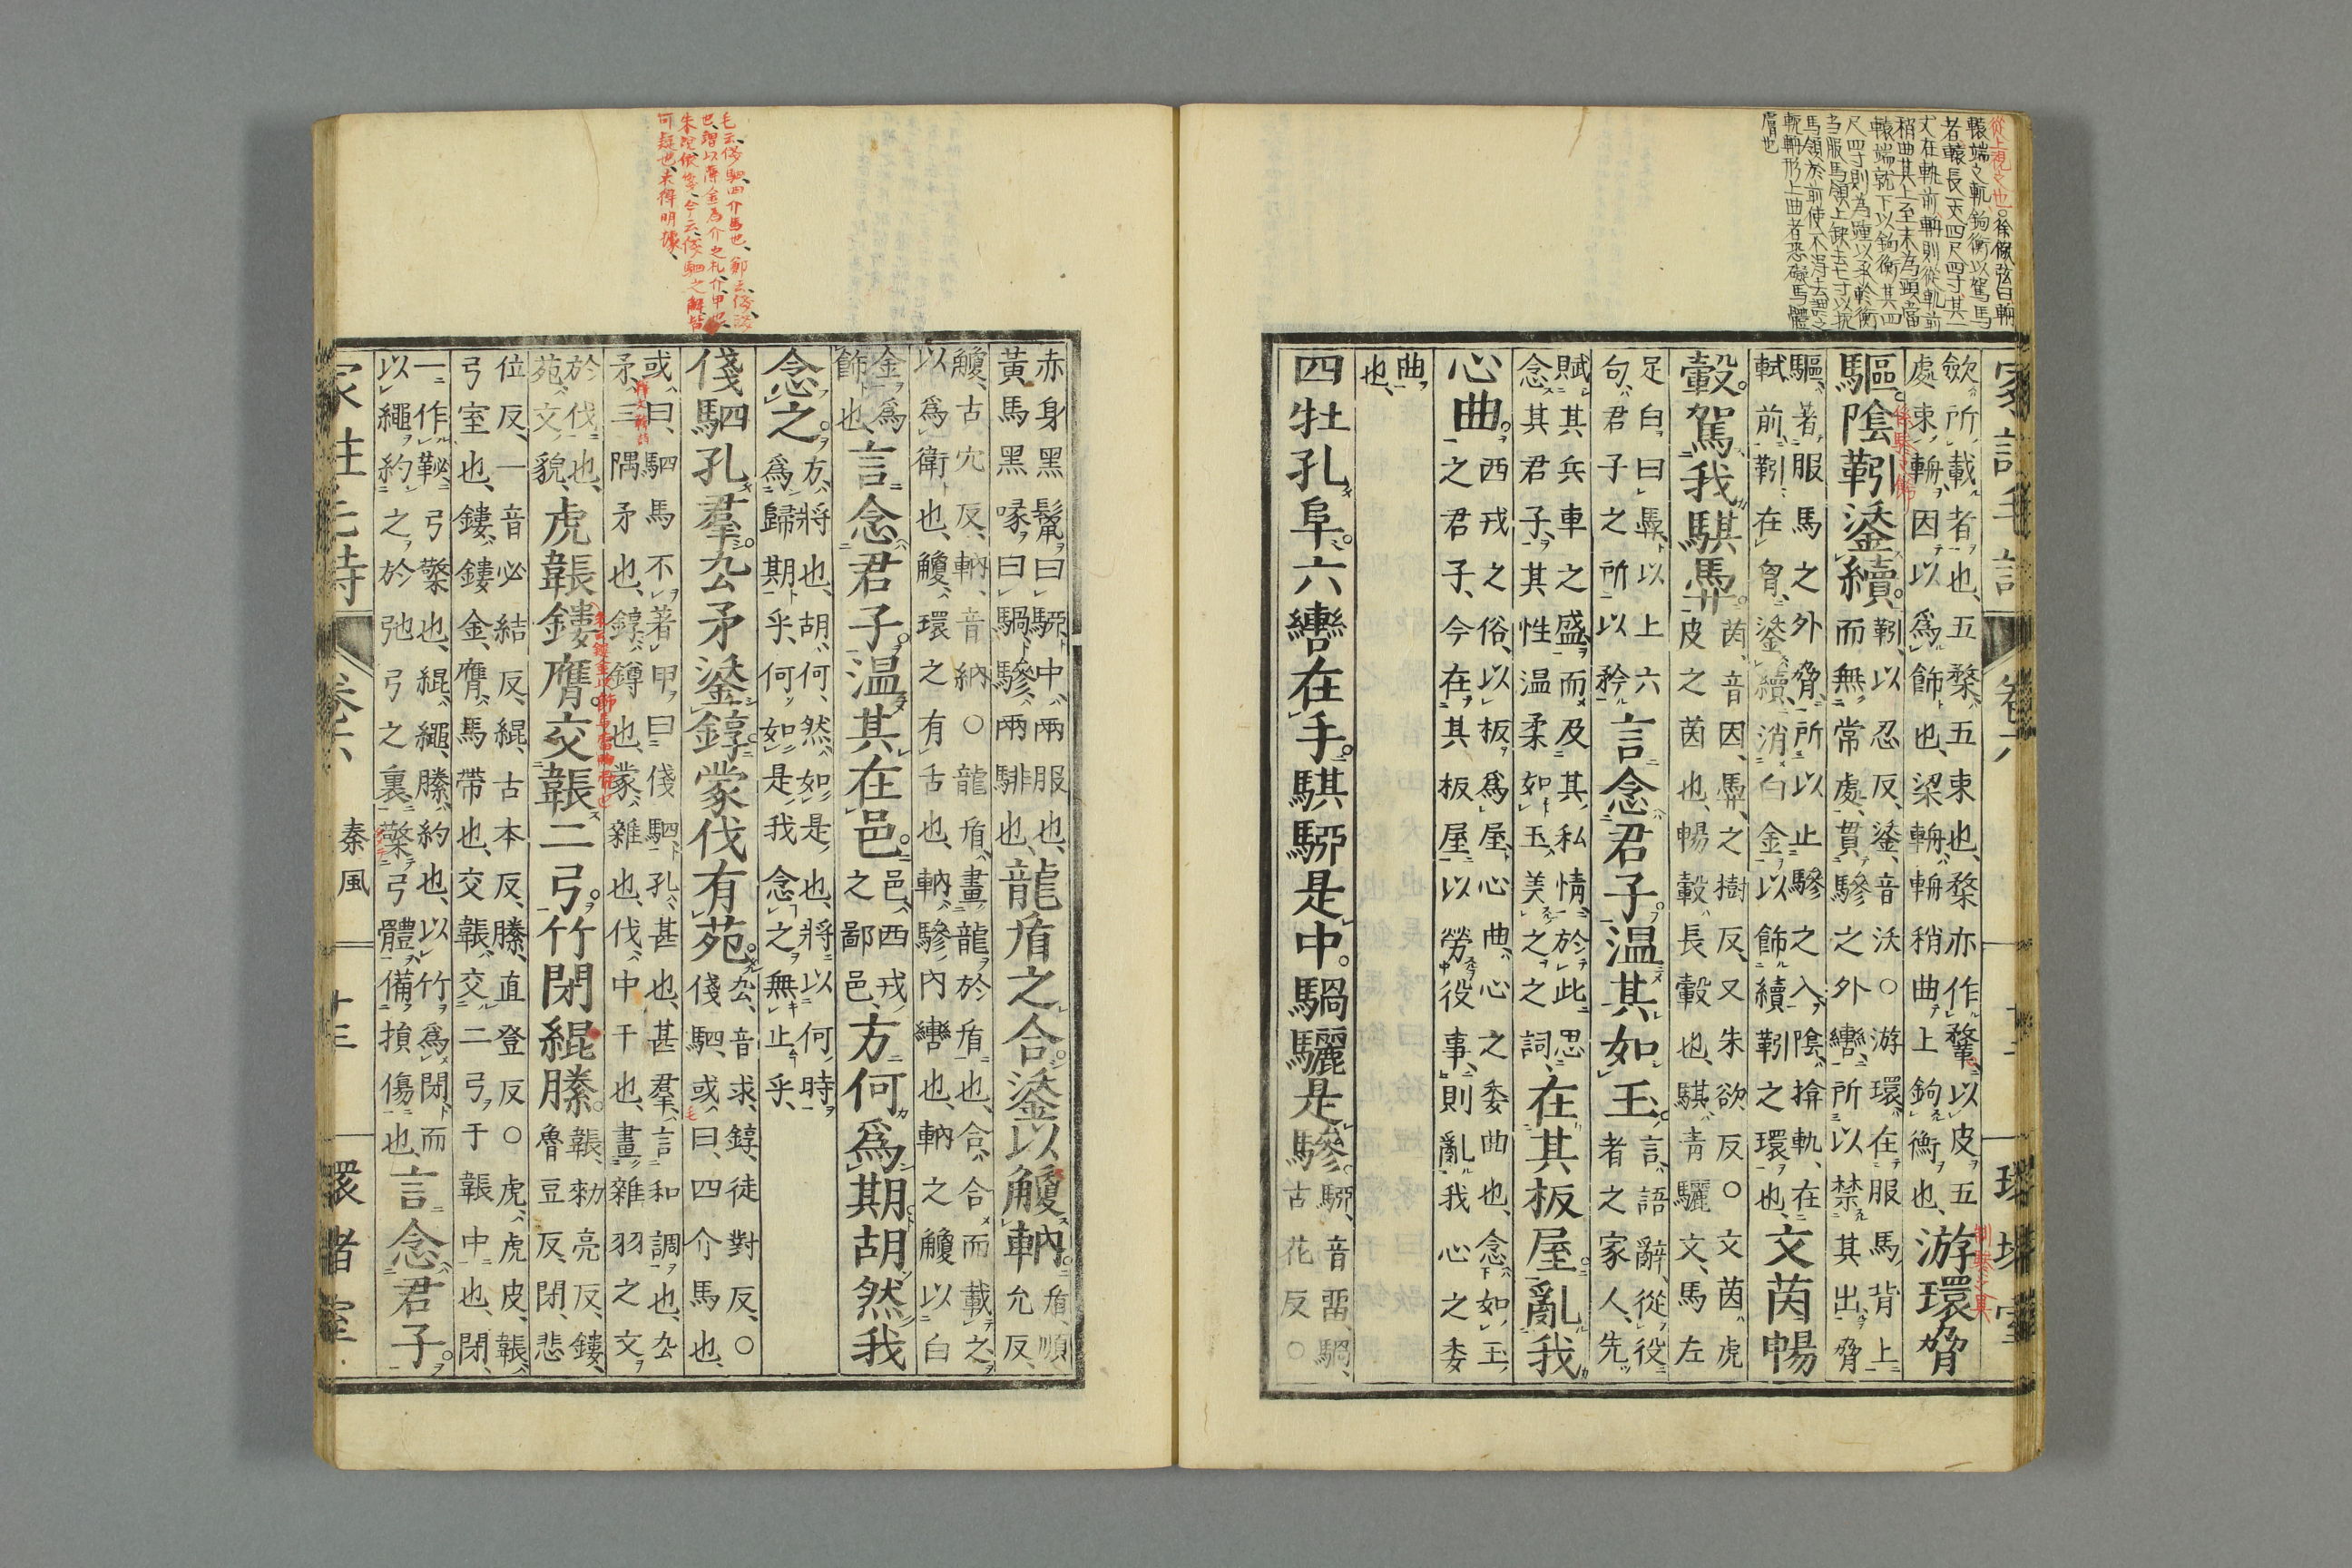 從上視之也。徐儆弦曰輈
轅端之軏鉤衡以駕馬
者轅長一丈四尺四寸其一
丈在軓前輈則從軓前
稍曲其上至末為頸當
轅端就下以鉤衡其四
馬領於前使不得去
軏輈形上曲者恐礙馬體
膺也
卷六
歛所載者也、五楘、五束也、楘亦作鞪、以皮五
處束輈、因以爲飾也、梁輈、輈稍曲上鉤衡也、
游環脅
驅陰靷鋈續。
靷、以忍反、鋈、音沃〇游環在服馬背上
而無常處、貫驂之外轡、所以禁其出、脅
驅、著服馬之外脅、所以止驂之入、陰、揜軌、在
軾前、靷在胷、鋈續、消白金以飾續靷之環也、
文茵暢
轂。駕我騏馵。
茵、音因、馵、之樹反、又朱欲反〇文茵、虎
皮之茵也、暢轂、長轂也、騏、青驪文、馬左
足白曰馵、以上六
句、君子之所以矜
言念君子。温其如玉。
言、語辭、從役
者之家人、先
賦其兵車之盛、而及其私情、於此思
念其君子、其性温柔如玉、美之之詞、
在其板屋。亂我
心曲。
西戎之俗、以板爲屋、心曲、心之委曲也、念如玉、
之君子、今在其板屋、以勞役事、則亂我心之委
曲
也、
四牡孔阜。六轡在手。騏騮是中。騧驪是驂。
騮、音畱、騧、
古花反〇
赤身黑鬣曰騮、中、兩服也、
黃馬黑喙曰騧、驂、兩騑也、
龍盾之合。鋈以觼軜。
盾、順
允反、
觼、古穴反、軜、音納〇龍盾、畫龍於盾也、合、合而載之、
以爲衛也、觼、環之有舌也、軜、驂內轡也、軜之觼、以白
金爲
飾也、
言念君子。温其在邑。
邑、西戎
之鄙邑、
方何爲期胡然我
念之。
方、將也、胡、何、然、如是也、將以何時
爲歸期乎、何如是我念之無止乎、
俴駟孔羣。厹矛鋈錞。蒙伐有苑。
厹、音求、錞、徒對反、〇
俴駟、或曰、四介馬也、
或曰、駟馬不著甲曰俴駟、孔、甚也、甚羣、言和調也、厹
矛、三隅矛也、錞、鐏也、蒙、雜也、伐、中干也、畫雜羽之文
於伐也、
苑、文貌、
虎韔鏤膺。交韔二弓。竹閉緄縢。
韔、勑亮反、鏤、
魯豆反、閉、悲
位反、一音必結反、緄、古本反、縢、直登反〇虎、虎皮、韔、
弓室也、鏤、鏤金、膺、馬帶也、交韔、交二弓于韔中也、閉、
一作䪐、弓檠也、緄、繩、縢、約也、以竹爲閉、而
以繩約之於弛弓之裏、檠弓體、備損傷也、
言念君子。
秦風
毛云俴駟四介馬也、鄭云俴淺
也、謂以薄金為介之札、介甲也、
可疑也、未得明據、